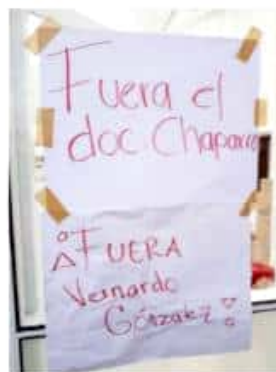 Fuera el
doc Chaparro
¡FUERA
Vernardo
González!